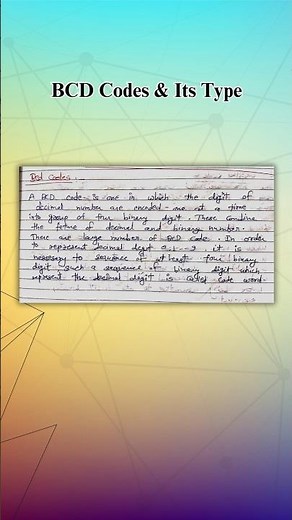 BCD Codes & Its Type
Bcd Codes.
A BCD code is one in which the digit of
decimal number are encoded one at a time
into group of four binary digit. These combine
the feture of decimal and binary number.
There are large number of BCD code. In order
to represent decimal digit 0,1...9 it is
necessary to sequence of atleast four binary
digit such a sequence of binary digit which
represent the decimal digit is called code word